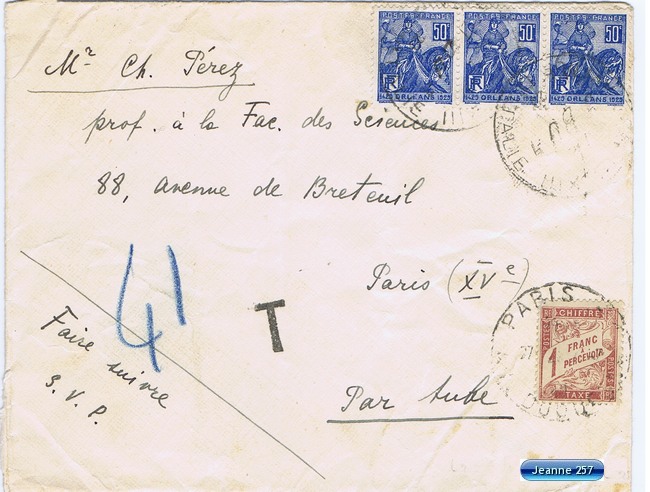 POSTES-FRANCE POSTES-FRANCE POSTES-FRANCE
50c 50c 50c
RF RF RF
1429 ORLEANS 1929 1429 ORLEANS 1929 1429 ORLEANS 1929
Mr Ch. Pérez
prof. à la Fac. des Sciences
88, avenue de Breteuil
Paris (XVe)
41
T
Faire suivre
S.V.P.
Par tube
PARIS
CHIFFRE
1 FRANC
À PERCEVOIR
TAXE
Jeanne 257